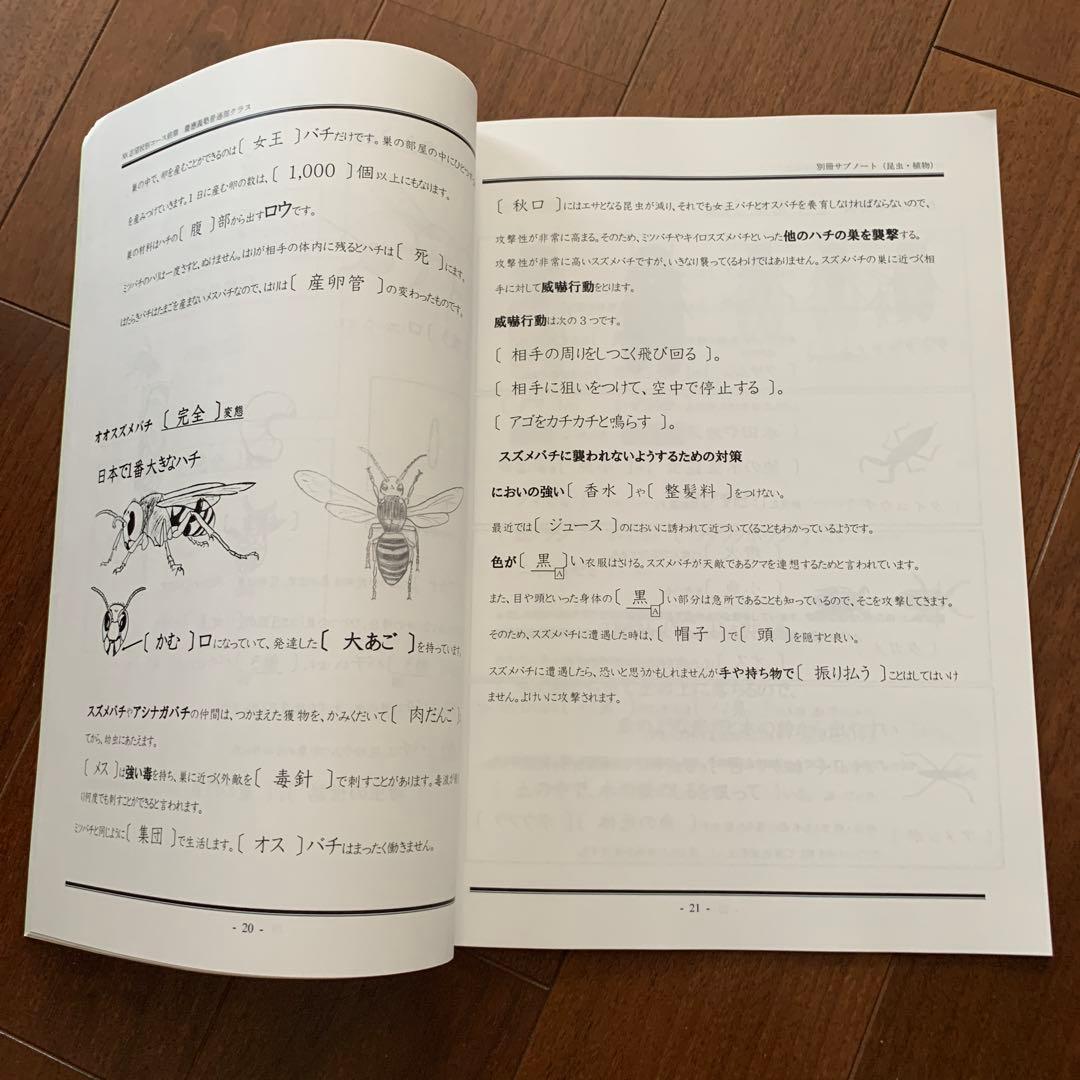 NN志望校別コース前期 慶應義塾普通部クラス
巣の中で、卵を産むことができるのは〔 女王 〕バチだけです。巣の部屋の中にひとつずつ
を産みつけていきます。1日に産む卵の数は、〔 1,000 〕個以上にもなります。
巣の材料はハチの〔 腹 〕部から出すロウです。
ミツバチのハリは一度さすと、ぬけません。はりが相手の体内に残るとハチは〔 死 〕にます。
はたらきバチはたまごを産まないメスバチなので、はりは〔 産卵管 〕の変わったものです。
オオスズメバチ 〔 完全 〕変態
日本で1番大きなハチ
〔 かむ 〕口になっていて、発達した〔 大あご 〕を持っています。
スズメバチやアシナガバチの仲間は、つかまえた獲物を、かみくだいて〔 肉だんご 〕
てから、幼虫にあたえます。
〔 メス 〕は強い毒を持ち、巣に近づく外敵を〔 毒針 〕で刺すことがあります。毒液が
り何度でも刺すことができると言われます。
ミツバチと同じように〔 集団 〕で生活します。〔 オス 〕バチはまったく働きません。
- 20 -
別冊サブノート(昆虫・植物)
〔 秋口 〕にはエサとなる昆虫が減り、それでも女王バチとオスバチを養育しなければならないので、
攻撃性が非常に高まる。そのため、ミツバチやキイロスズメバチといった他のハチの巣を襲撃する。
攻撃性が非常に高いスズメバチですが、いきなり襲ってくるわけではありません。スズメバチの巣に近づく相
手に対して威嚇行動をとります。
威嚇行動は次の3つです。
〔 相手の周りをしつこく飛び回る 〕。
〔 相手に狙いをつけて、空中で停止する 〕。
〔 アゴをカチカチと鳴らす 〕。
スズメバチに襲われないようするための対策
においの強い〔 香水 〕や〔 整髪料 〕をつけない。
最近では〔 ジュース 〕のにおいに誘われて近づいてくることもわかっているようです。
色が〔 黒 〕い衣服はさける。スズメバチが天敵であるクマを連想するためと言われています。
A
また、目や頭といった身体の〔 黒 〕い部分は急所であることも知っているので、そこを攻撃してきます。
A
そのため、スズメバチに遭遇した時は、〔 帽子 〕で〔 頭 〕を隠すと良い。
スズメバチに遭遇したら、恐いと思うかもしれませんが手や持ち物で〔 振り払う 〕ことはしてはいけ
ません。よけいに攻撃されます。
- 21 -